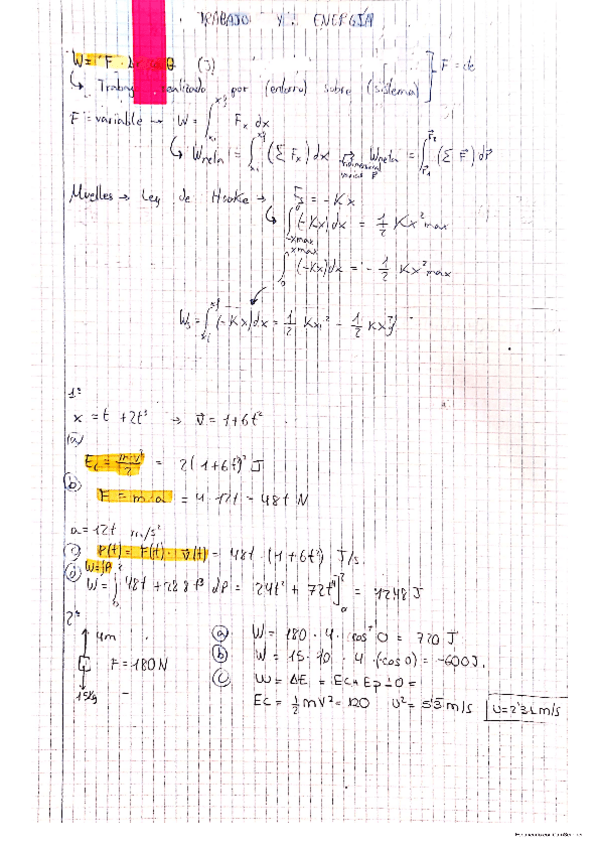 TRABAJO Y ENERGÍA
W = F · Δr · cos θ (J)
↳ Trabajo realizado por (entorno) sobre (sistema) } F = cte
F = variable → W = ∫ Fx dx
↳ Wneta = ∫ (Σ Fx) dx → Wneta = ∫ (Σ F⃗) dr⃗
Muelles → Ley de Hooke → Fs = -Kx
↳ ∫ (-Kx) dx = 1/2 Kx² max
∫ (-Kx) dx = - 1/2 Kx² max
Ws = ∫ (-Kx) dx = 1/2 Kxi² - 1/2 Kxf²
1º
x = t + 2t³ → v⃗ = 1+6t²
(a)
Ec = m·v²/2 = 2(1+6t²)² J
(b)
F = m·a = 4·12t = 48t N
a = 12t m/s²
(c) P(t) = F(t) · v(t) = 48t · (1+6t²) J/s.
(d) W=∫P
W = ∫ 48t + 288t³ dP = 24t² + 72t⁴]₀² = 1248 J
2º
4m
F = 180N
15Kg
(a) W = 180 · 4 · cos 0 = 720 J
(b) W = 15 · 10 · 4 · (-cos 0) = -600J.
(c) W = ΔE = Ec + Ep + 0 =
Ec = 1/2 mv² = 120 v² = 5'3 m/s v=2'31 m/s